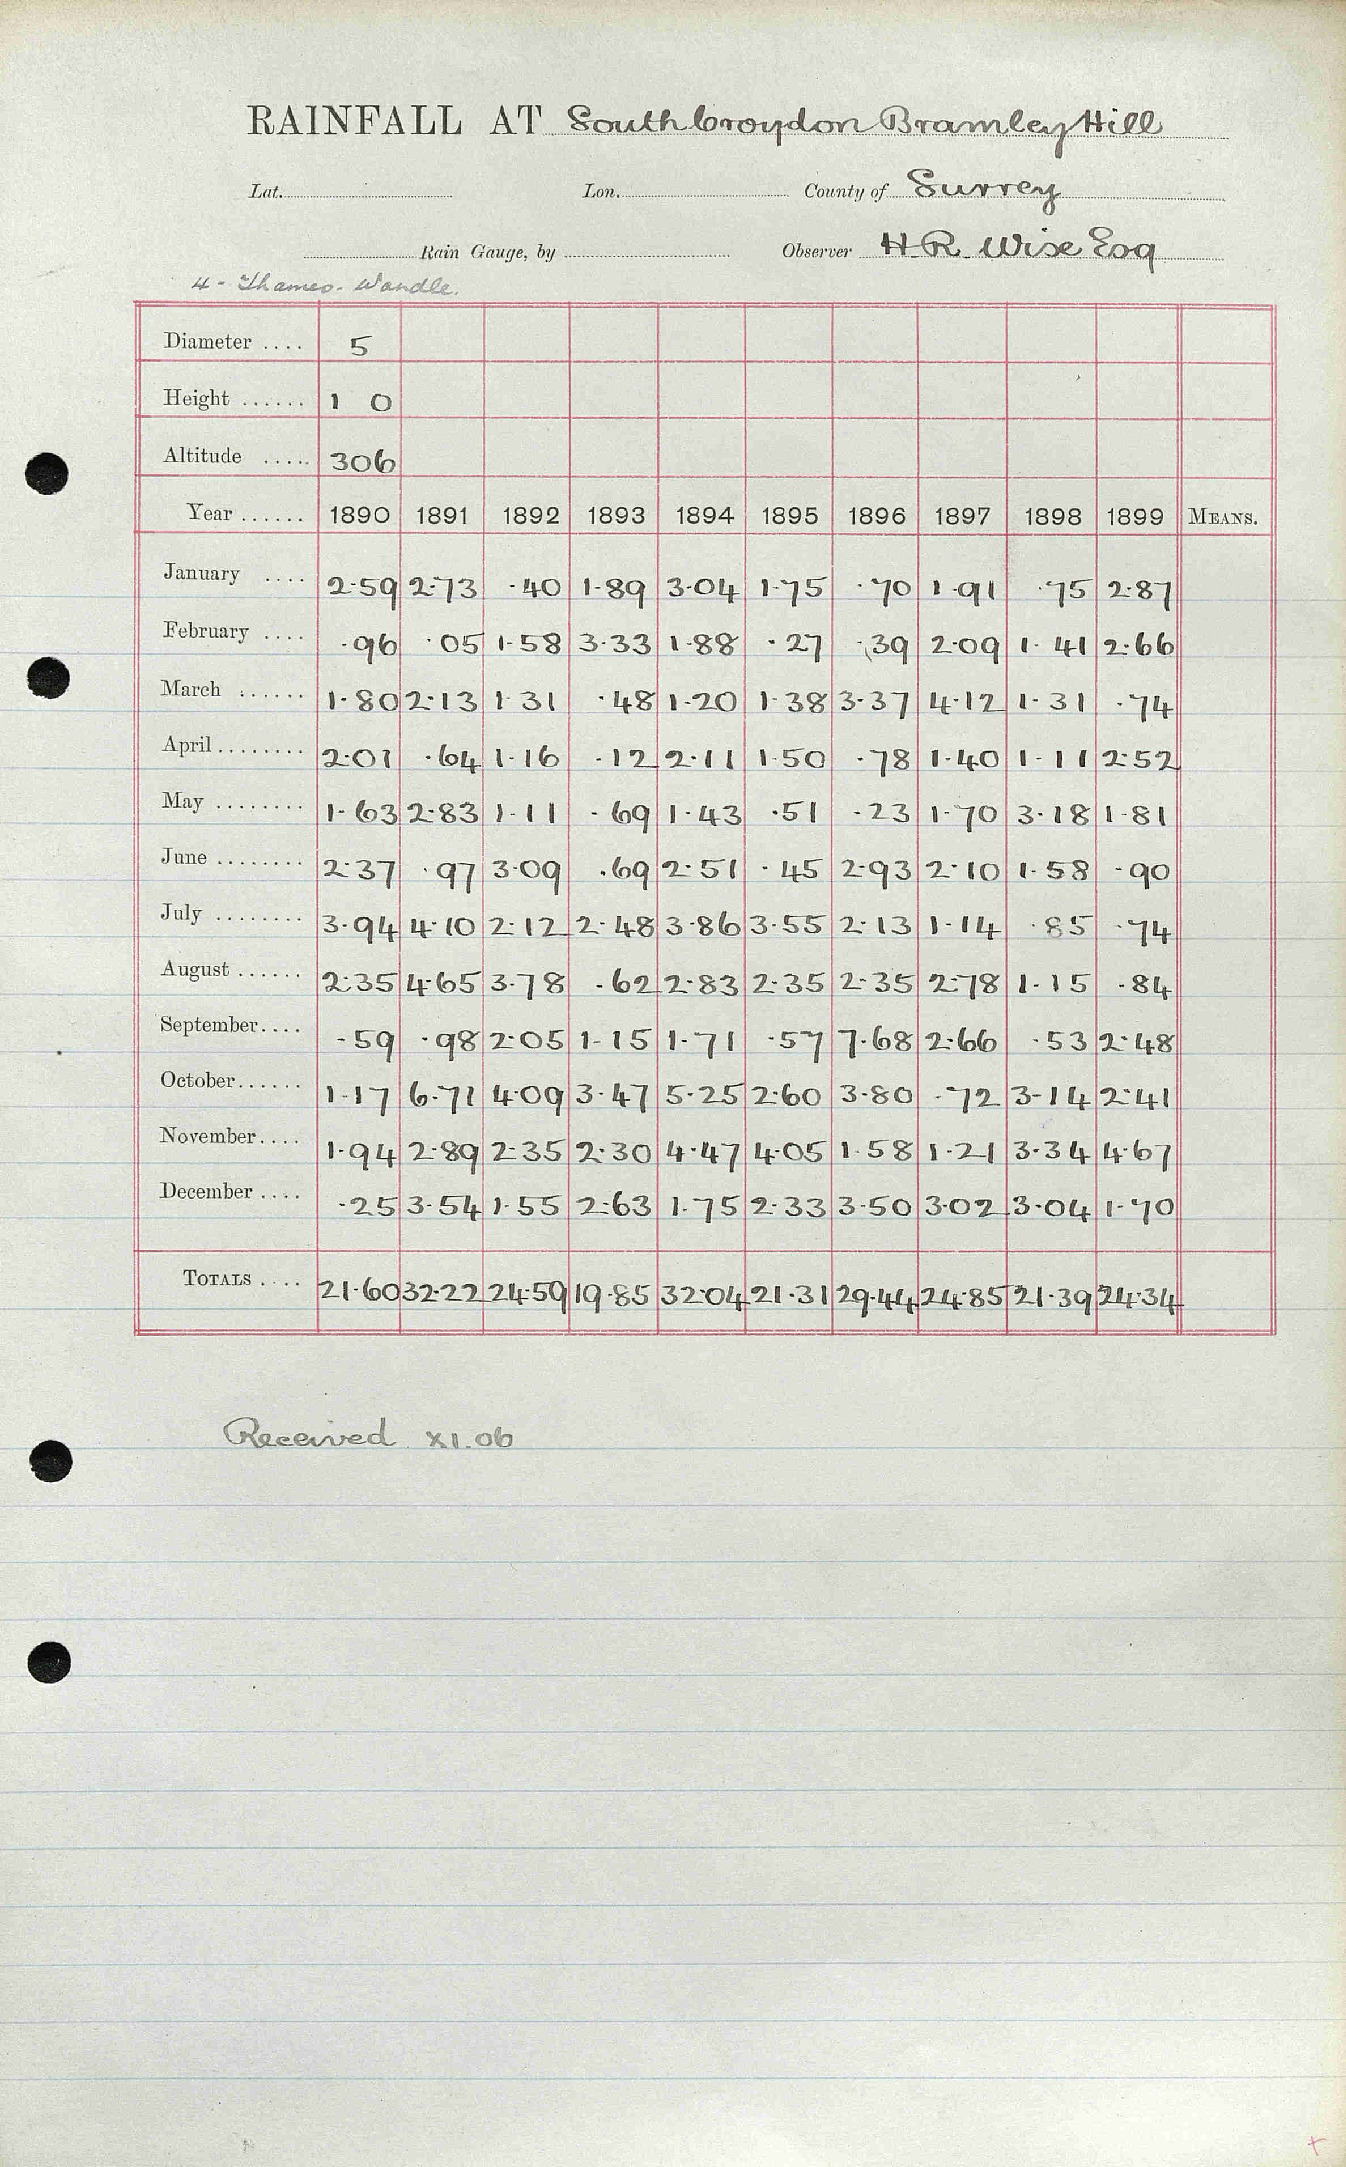 RAINFALL AT South Croydon Bramley Hill
Lat. Lon. County of Surrey
Rain Gauge, by Observer H.R. Wise Esq
4 - Thames. Wandle.
Diameter .... 5
Height ...... 1 0
Altitude ..... 306
Year ...... 1890 1891 1892 1893 1894 1895 1896 1897 1898 1899 MEANS.
January .... 2.59 2.73 .40 1.89 3.04 1.75 .70 1.91 .75 2.87
February .... .96 .05 1.58 3.33 1.88 .27 .39 2.09 1.41 2.66
March ...... 1.80 2.13 1.31 .48 1.20 1.38 3.37 4.12 1.31 .74
April ........ 2.01 .64 1.16 .12 2.11 1.50 .78 1.40 1.11 2.52
May ........ 1.63 2.83 1.11 .69 1.43 .51 .23 1.70 3.18 1.81
June ........ 2.37 .97 3.09 .69 2.51 .45 2.93 2.10 1.58 .90
July ........ 3.94 4.10 2.12 2.48 3.86 3.55 2.13 1.14 .85 .74
August ...... 2.35 4.65 3.78 .62 2.83 2.35 2.35 2.78 1.15 .84
September.... .59 .98 2.05 1.15 1.71 .57 7.68 2.66 .53 2.48
October...... 1.17 6.71 4.09 3.47 5.25 2.60 3.80 .72 3.14 2.41
November.... 1.94 2.89 2.35 2.30 4.47 4.05 1.58 1.21 3.34 4.67
December .... .25 3.54 1.55 2.63 1.75 2.33 3.50 3.02 3.04 1.70
TOTALS .... 21.60 32.22 24.59 19.85 32.04 21.31 29.44 24.85 21.39 24.34
Received XI.06